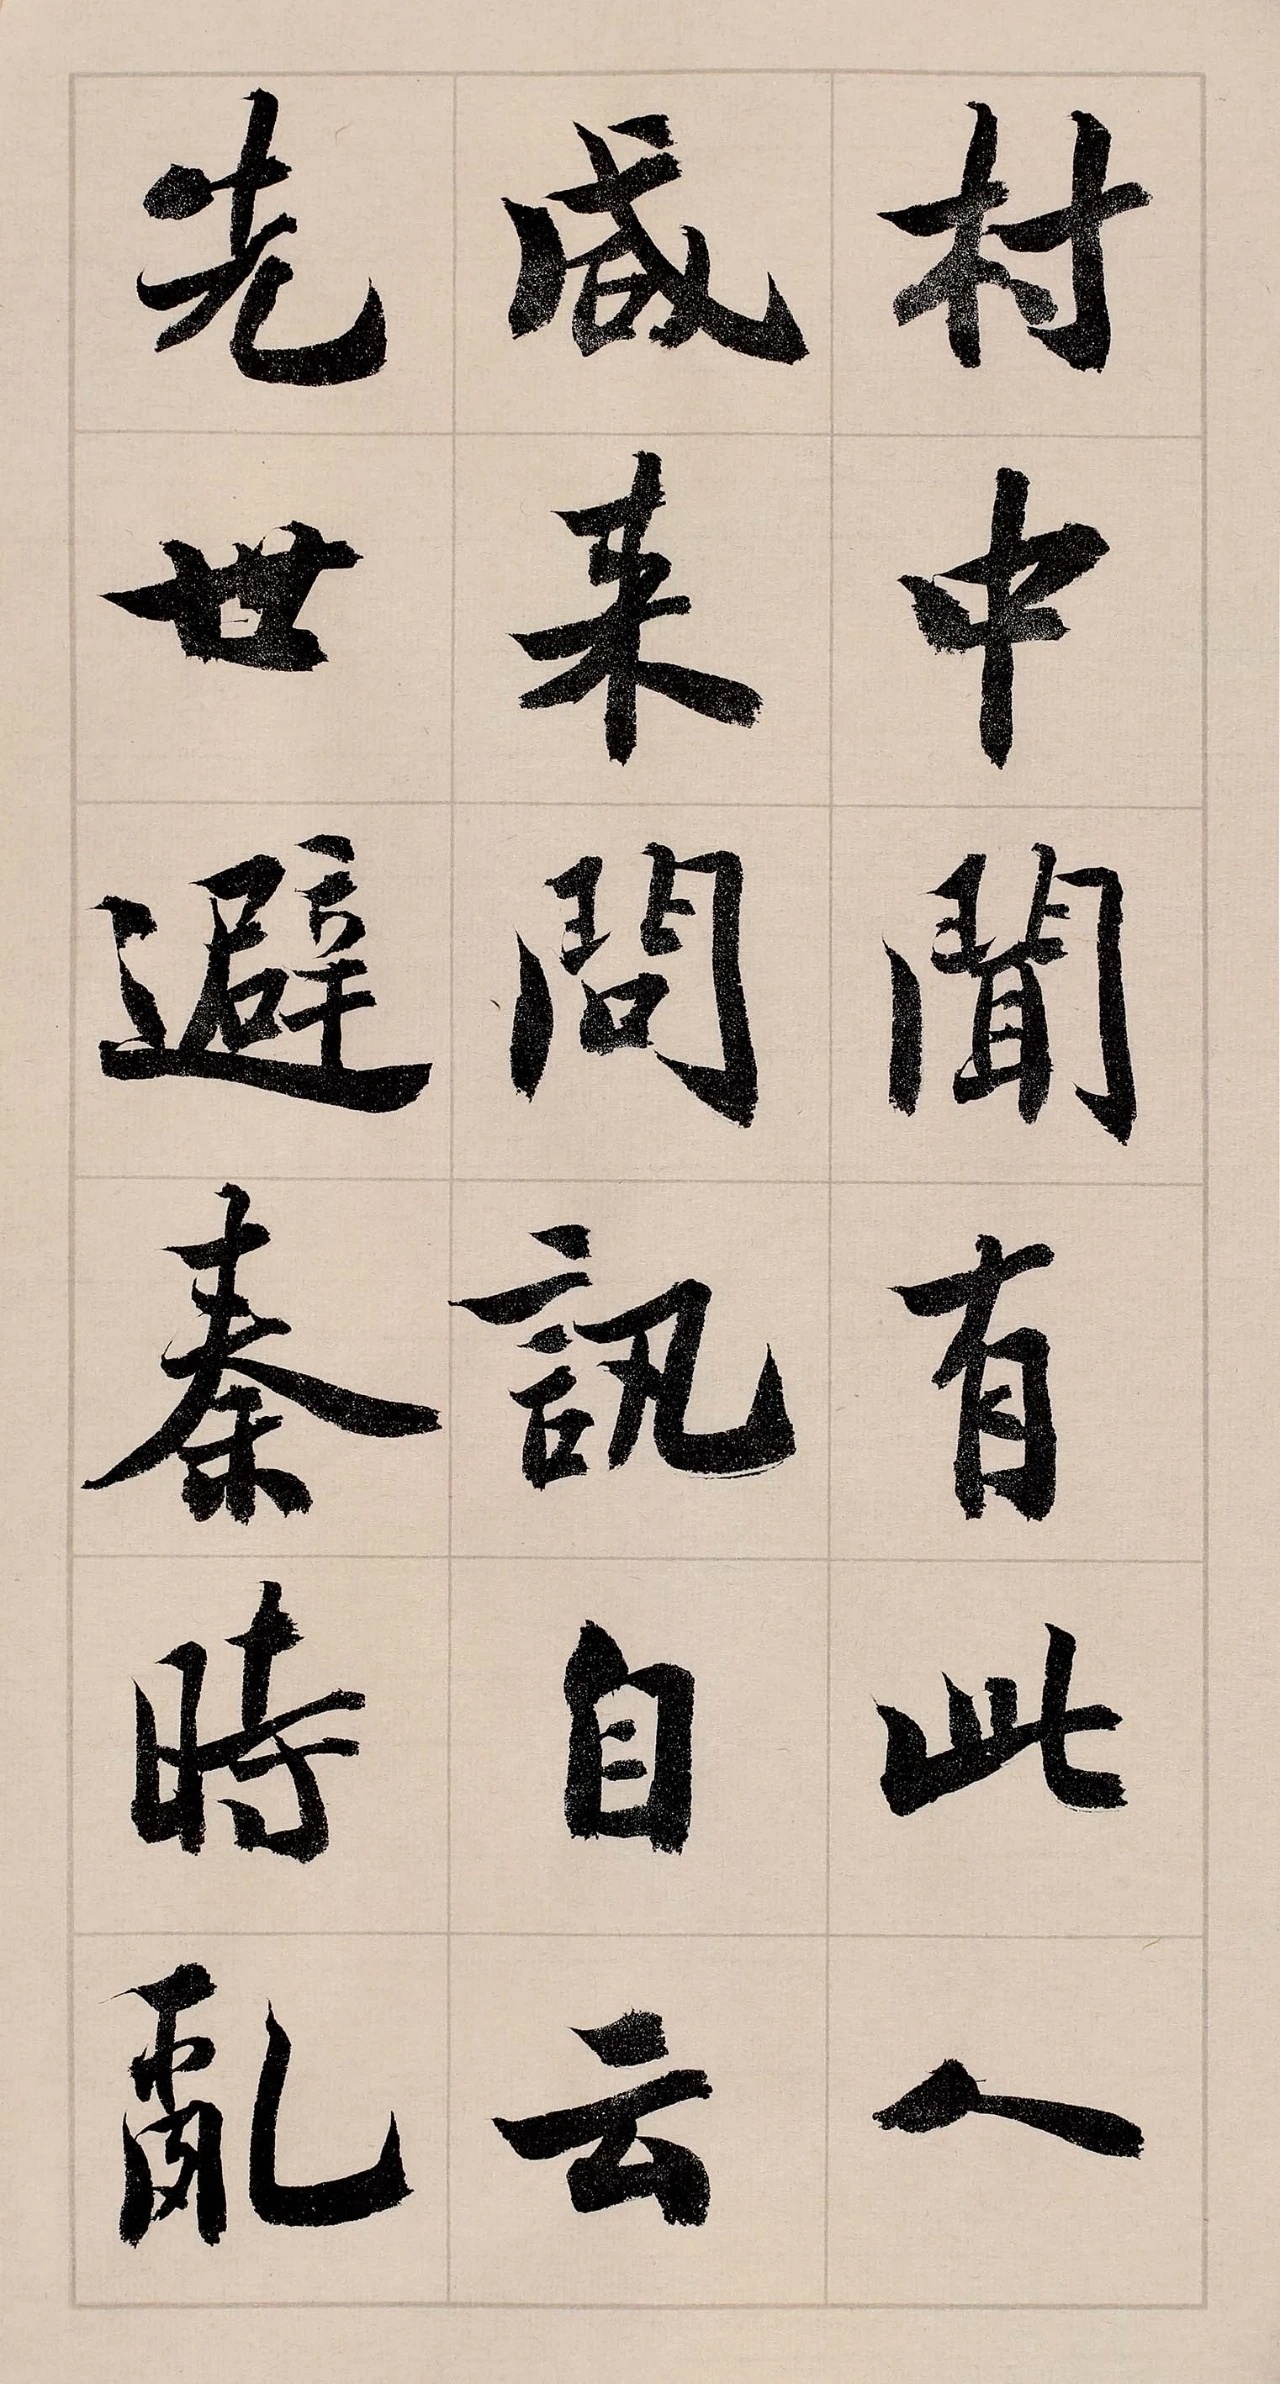 村中聞有此人
咸来問訊自云
先世避秦時亂